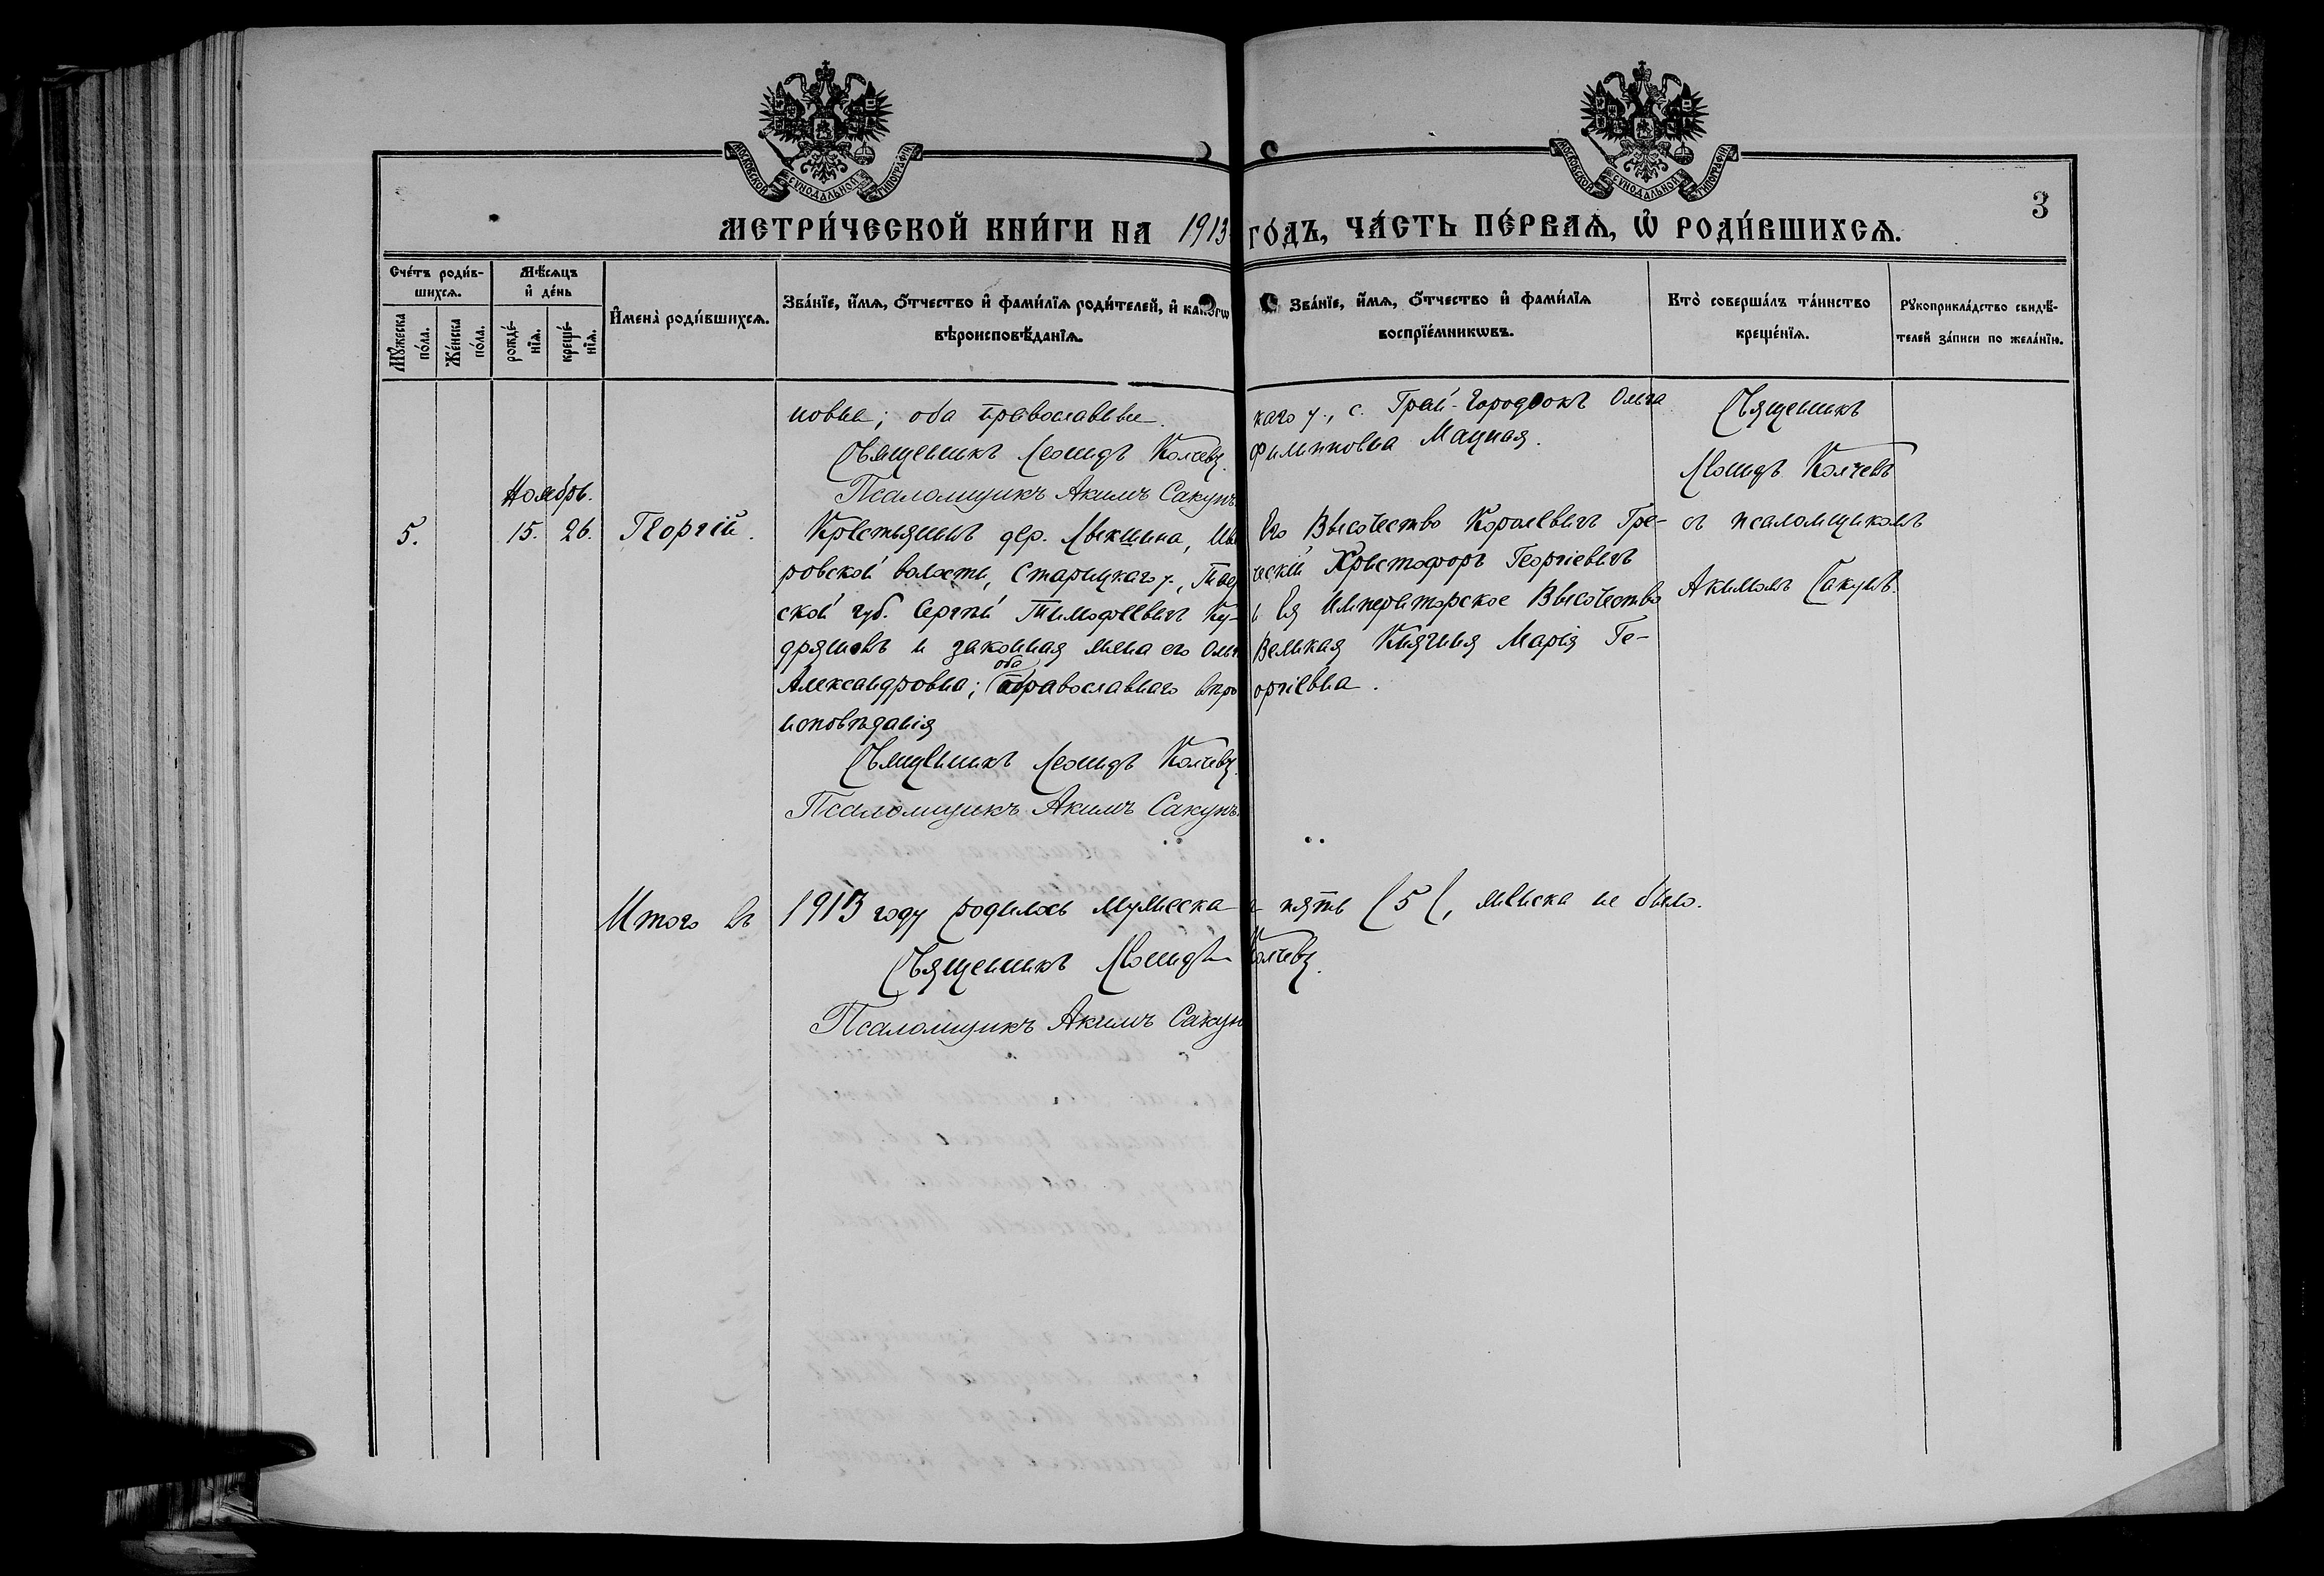 МОСКОВСКОЙ СѴНОДАЛЬНОЙ ТИПОГРАФІИ
МОСКОВСКОЙ СѴНОДАЛЬНОЙ ТИПОГРАФІИ
3
МЕТРИ́ЧЕСКОЙ КНИ́ГИ НА 1913 ГО́ДЪ, ЧА́СТЬ ПЕ́РВАѦ, Ѡ҆ РОДИ́ВШИХСѦ.
Сче́тъ роди́в-
шихсѧ.
Мꙋ́жеска по́ла.
Же́нска по́ла.
Мѣ́сѧцъ
и҆ де́нь
рожде́-нїѧ.
креще́-нїѧ.
И҆мена̀ роди́вшихсѧ.
Зва́нїе, и҆́мѧ, ѻ҆́тчество и҆ фами́лїѧ роди́телей, и҆ како́гѡ
вѣроисповѣ́данїѧ.
Зва́нїе, и҆́мѧ, ѻ҆́тчество и҆ фами́лїѧ
воспрїе́мникѡвъ.
Кто̀ соверша́лъ та́инство
креще́нїѧ.
Рꙋкоприкла́дство свидѣ́-
телей за́писи по жела́нїю.
новы; оба православные.
Священникъ Леонидъ Колчевъ.
Псаломщикъ Акимъ Сакунъ.
каго у., с. Грай-Городокъ Ольга
Филипповна Мацкая.
Священникъ
Леонидъ Колчевъ
съ псаломщикомъ
Акимомъ Сакунъ.
Ноябрь.
5. 15. 26. Георгій.
Крестьянинъ дер. Левкина,
ровской волости, Старицкаго у., Твер
ской губ. Сергѣй Тимофеевичъ Ку-
дряшовъ и законная жена его Ольга
Александровна; оба православнаго вѣро
исповѣданія
Священникъ Леонидъ Колчевъ.
Псаломщикъ Акимъ Сакунъ.
Его Высочество Королевичъ Гре-
ческій Христофоръ Георгіевичъ
и Ея Императорское Высочество
Великая Княгиня Марія Ге-
оргіевна.
Итого въ 1913 году родилось мужеска пять (5), женска не было.
Священникъ Леонидъ Колчевъ.
Псаломщикъ Акимъ Сакунъ